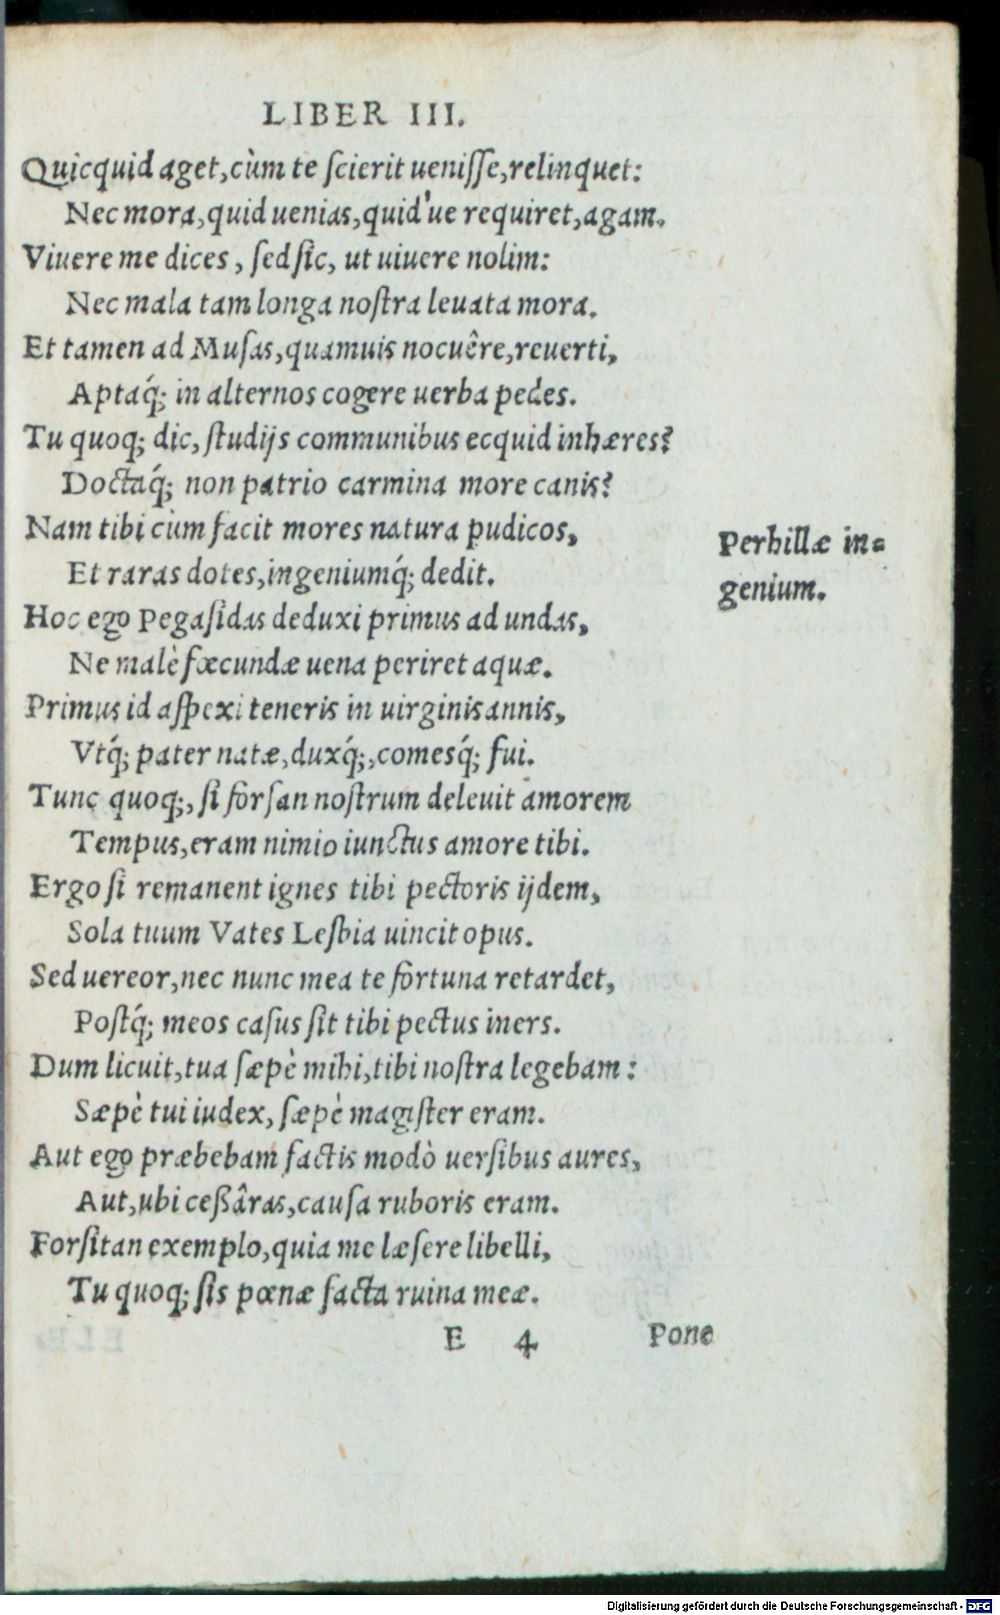 LIBER III.
Quicquid aget, cùm te ſcierit ueniſſe, relinquet:
Nec mora, quid uenias, quid'ue requiret, agam.
Viuere me dices, ſed ſic, ut uiuere nolim:
Nec mala tam longa noſtra leuata mora.
Et tamen ad Muſas, quamuis nocuêre, reuerti,
Aptaq́; in alternos cogere uerba pedes.
Tu quoq; dic, ſtudijs communibus ecquid inhæres?
Doctaq́; non patrio carmina more canis?
Nam tibi cùm facit mores natura pudicos,
Perhillæ in=
genium.
Et raras dotes, ingeniumq́; dedit.
Hoc ego Pegaſidas deduxi primus ad undas,
Ne malè fœcundæ uena periret aquæ.
Primus id aſpexi teneris in uirginis annis,
Vtq́; pater natæ, duxq́;, comesq́; fui.
Tunc quoq;, ſi forſan noſtrum deleuit amorem
Tempus, eram nimio iunctus amore tibi.
Ergo ſi remanent ignes tibi pectoris ijdem,
Sola tuum Vates Leſbia uincit opus.
Sed uereor, nec nunc mea te fortuna retardet,
Poſtq́; meos caſus ſit tibi pectus iners.
Dum licuit, tua ſæpè mihi, tibi noſtra legebam:
Sæpè tui iudex, ſæpè magiſter eram.
Aut ego præbebam factis modò uerſibus aures,
Aut, ubi ceßâras, cauſa ruboris eram.
Forſitan exemplo, quia me læſere libelli,
Tu quoq; ſis pœnæ facta ruina meæ.
E 4 Pone
Digitalisierung gefördert durch die Deutsche Forschungsgemeinschaft - DFG